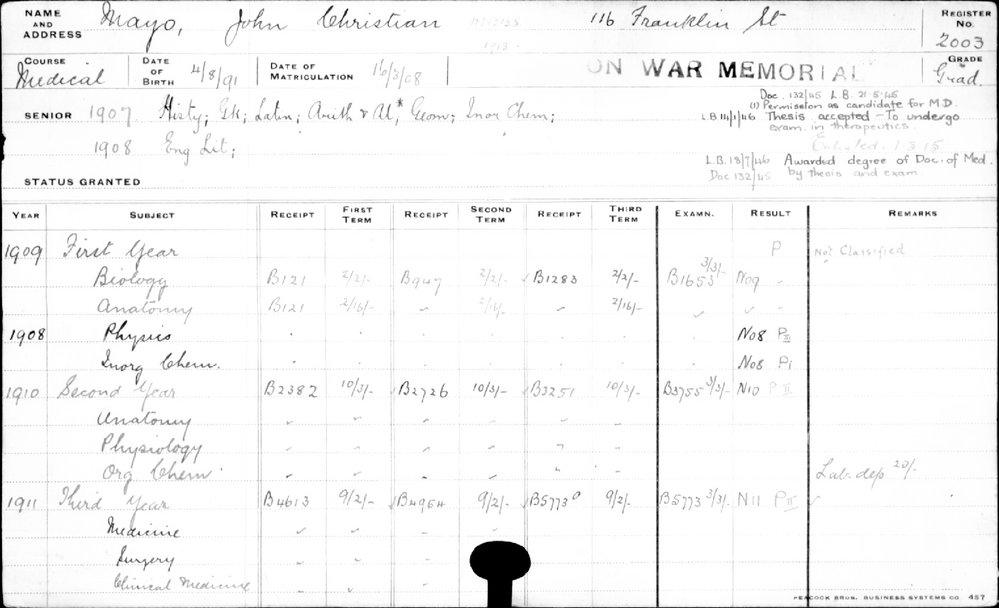 NAME AND ADDRESS Mayo, John Christian 116 Franklin St REGISTER No. 2003
COURSE Medical DATE OF BIRTH 4/8/91 DATE OF MATRICULATION 16/3/08 ON WAR MEMORIAL GRADE Grad.
Doc. 132/45 L.B. 21.5.45
(1) Permission as candidate for M.D.
SENIOR 1907 Histy; Gk; Latin; Arith & Al,* Geom; Inor Chem; L.B 14/1/46 Thesis accepted - To undergo
exam. in therapeutics.
Enlisted. 1.3.15
1908 Eng Lit; L.B. 18/7/46 Awarded degree of Doc. of Med.
Doc 132/45 by thesis and exam
STATUS GRANTED
YEAR SUBJECT RECEIPT FIRST TERM RECEIPT SECOND TERM RECEIPT THIRD TERM EXAMN. RESULT REMARKS
1909 First Year P Not Classified
Biology B121 2/2/- B947 2/2/- B1283 2/2/- B1653 3/3/- No9 -
Anatomy B121 2/16/- 2/16/- 2/16/-
1908 Physics No8 PIII
Inorg Chem. No8 Pi
1910 Second Year B2382 10/3/- B2726 10/3/- B3251 10/3/- B3755 3/3/- N10 P II
Anatomy
Physiology
Org Chem Lab. dep 20/-
1911 Third Year B4613 9/2/- B4964 9/2/- B5773 9/2/- B5773 3/3/- N11 P II
Medicine
Surgery
Clinical Medicine
PEACOCK BROS. BUSINESS SYSTEMS CO. 457